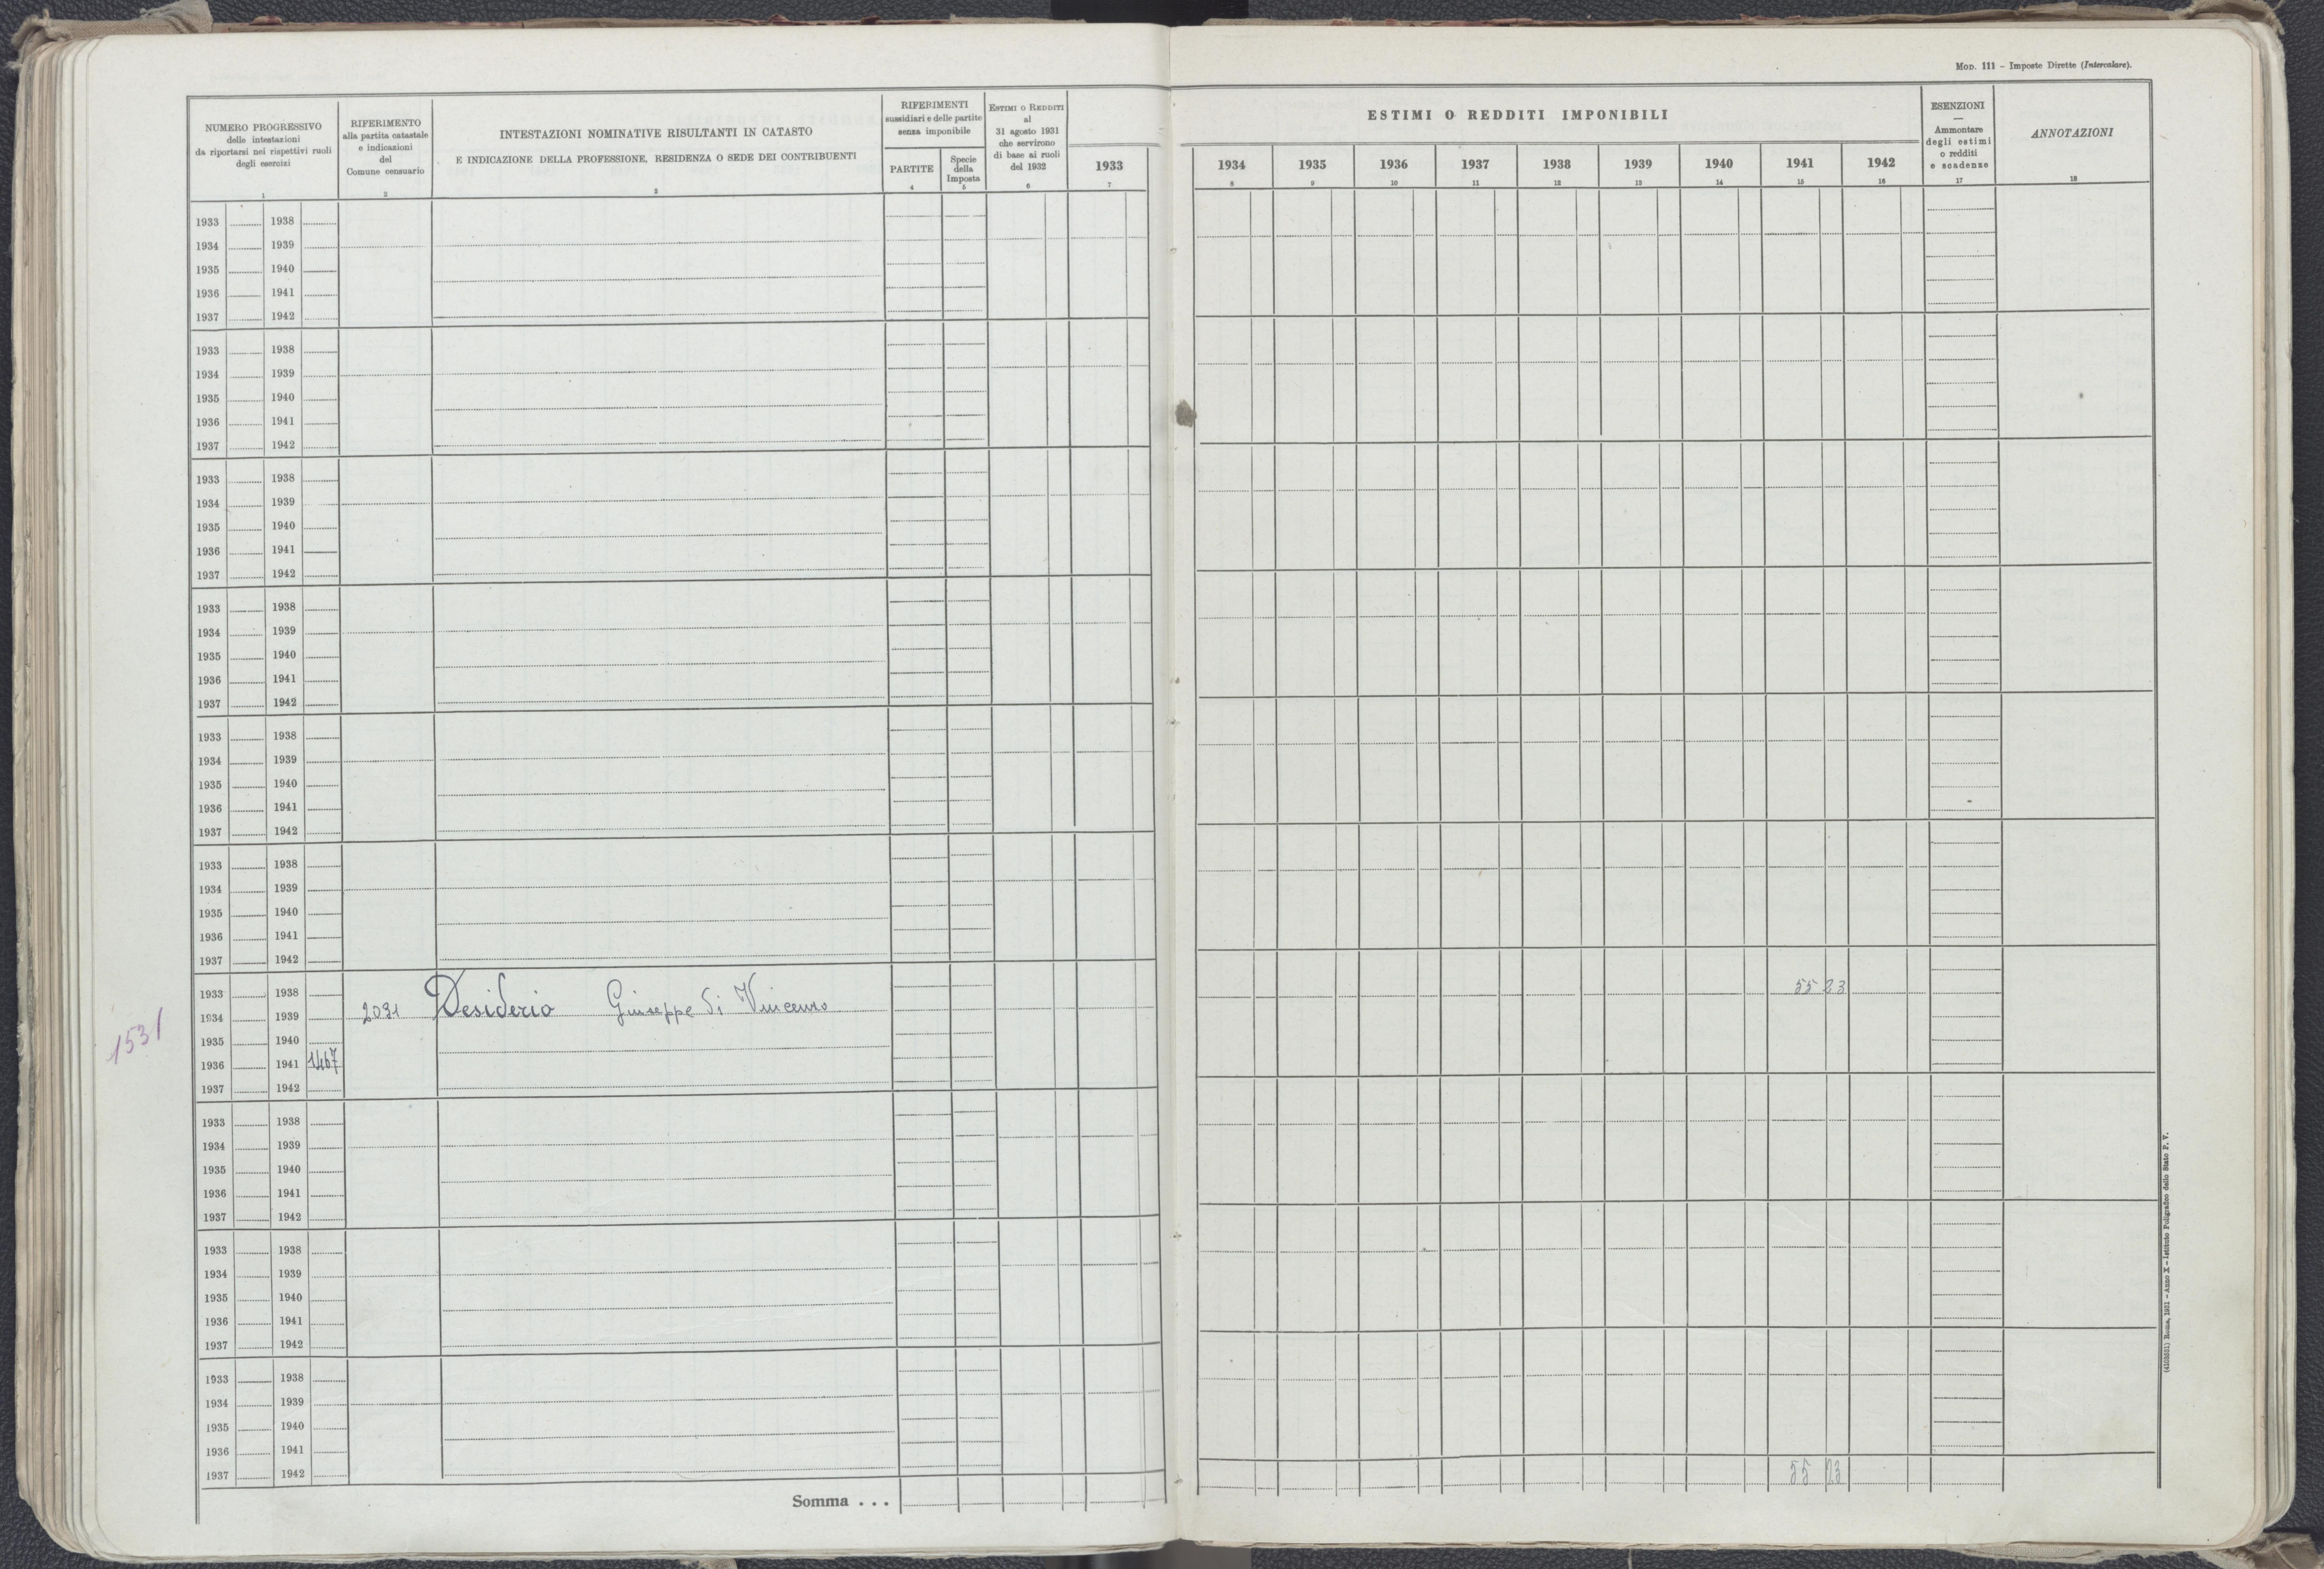 MOD. 111 - Imposte Dirette (Intercalare).
NUMERO PROGRESSIVO
delle intestazioni
da riportarsi nei rispettivi ruoli
degli esercizi
1
RIFERIMENTO
alla partita catastale
e indicazioni
del
Comune censuario
2
INTESTAZIONI NOMINATIVE RISULTANTI IN CATASTO
E INDICAZIONE DELLA PROFESSIONE, RESIDENZA O SEDE DEI CONTRIBUENTI
3
RIFERIMENTI
sussidiari e delle partite
senza imponibile
PARTITE
4
Specie
della
Imposta
5
ESTIMI O REDDITI
al
31 agosto 1931
che servirono
di base ai ruoli
del 1932
6
ESTIMI O REDDITI IMPONIBILI
1933 1934 1935 1936 1937 1938 1939 1940 1941 1942
7 8 9 10 11 12 13 14 15 16
ESENZIONI
—
Ammontare
degli estimi
o redditi
e scadenze
17
ANNOTAZIONI
18
1933 1938
1934 1939
1935 1940
1936 1941
1937 1942
1933 1938
1934 1939
1935 1940
1936 1941
1937 1942
1933 1938
1934 1939
1935 1940
1936 1941
1937 1942
1933 1938
1934 1939
1935 1940
1936 1941
1937 1942
1933 1938
1934 1939
1935 1940
1936 1941
1937 1942
1933 1938
1934 1939
1935 1940
1936 1941
1937 1942
1933 1938 55 23
1934 1939 2031 Desiderio Giuseppe di Vincenzo
1531
1935 1940
1936 1941 1467
1937 1942
1933 1938
1934 1939
1935 1940
1936 1941
1937 1942
1933 1938
1934 1939
1935 1940
1936 1941
1937 1942
1933 1938
1934 1939
1935 1940
1936 1941
1937 1942
Somma . . . 55 23
(4103581) Roma, 1931 - Anno X - Istituto Poligrafico dello Stato P. V.